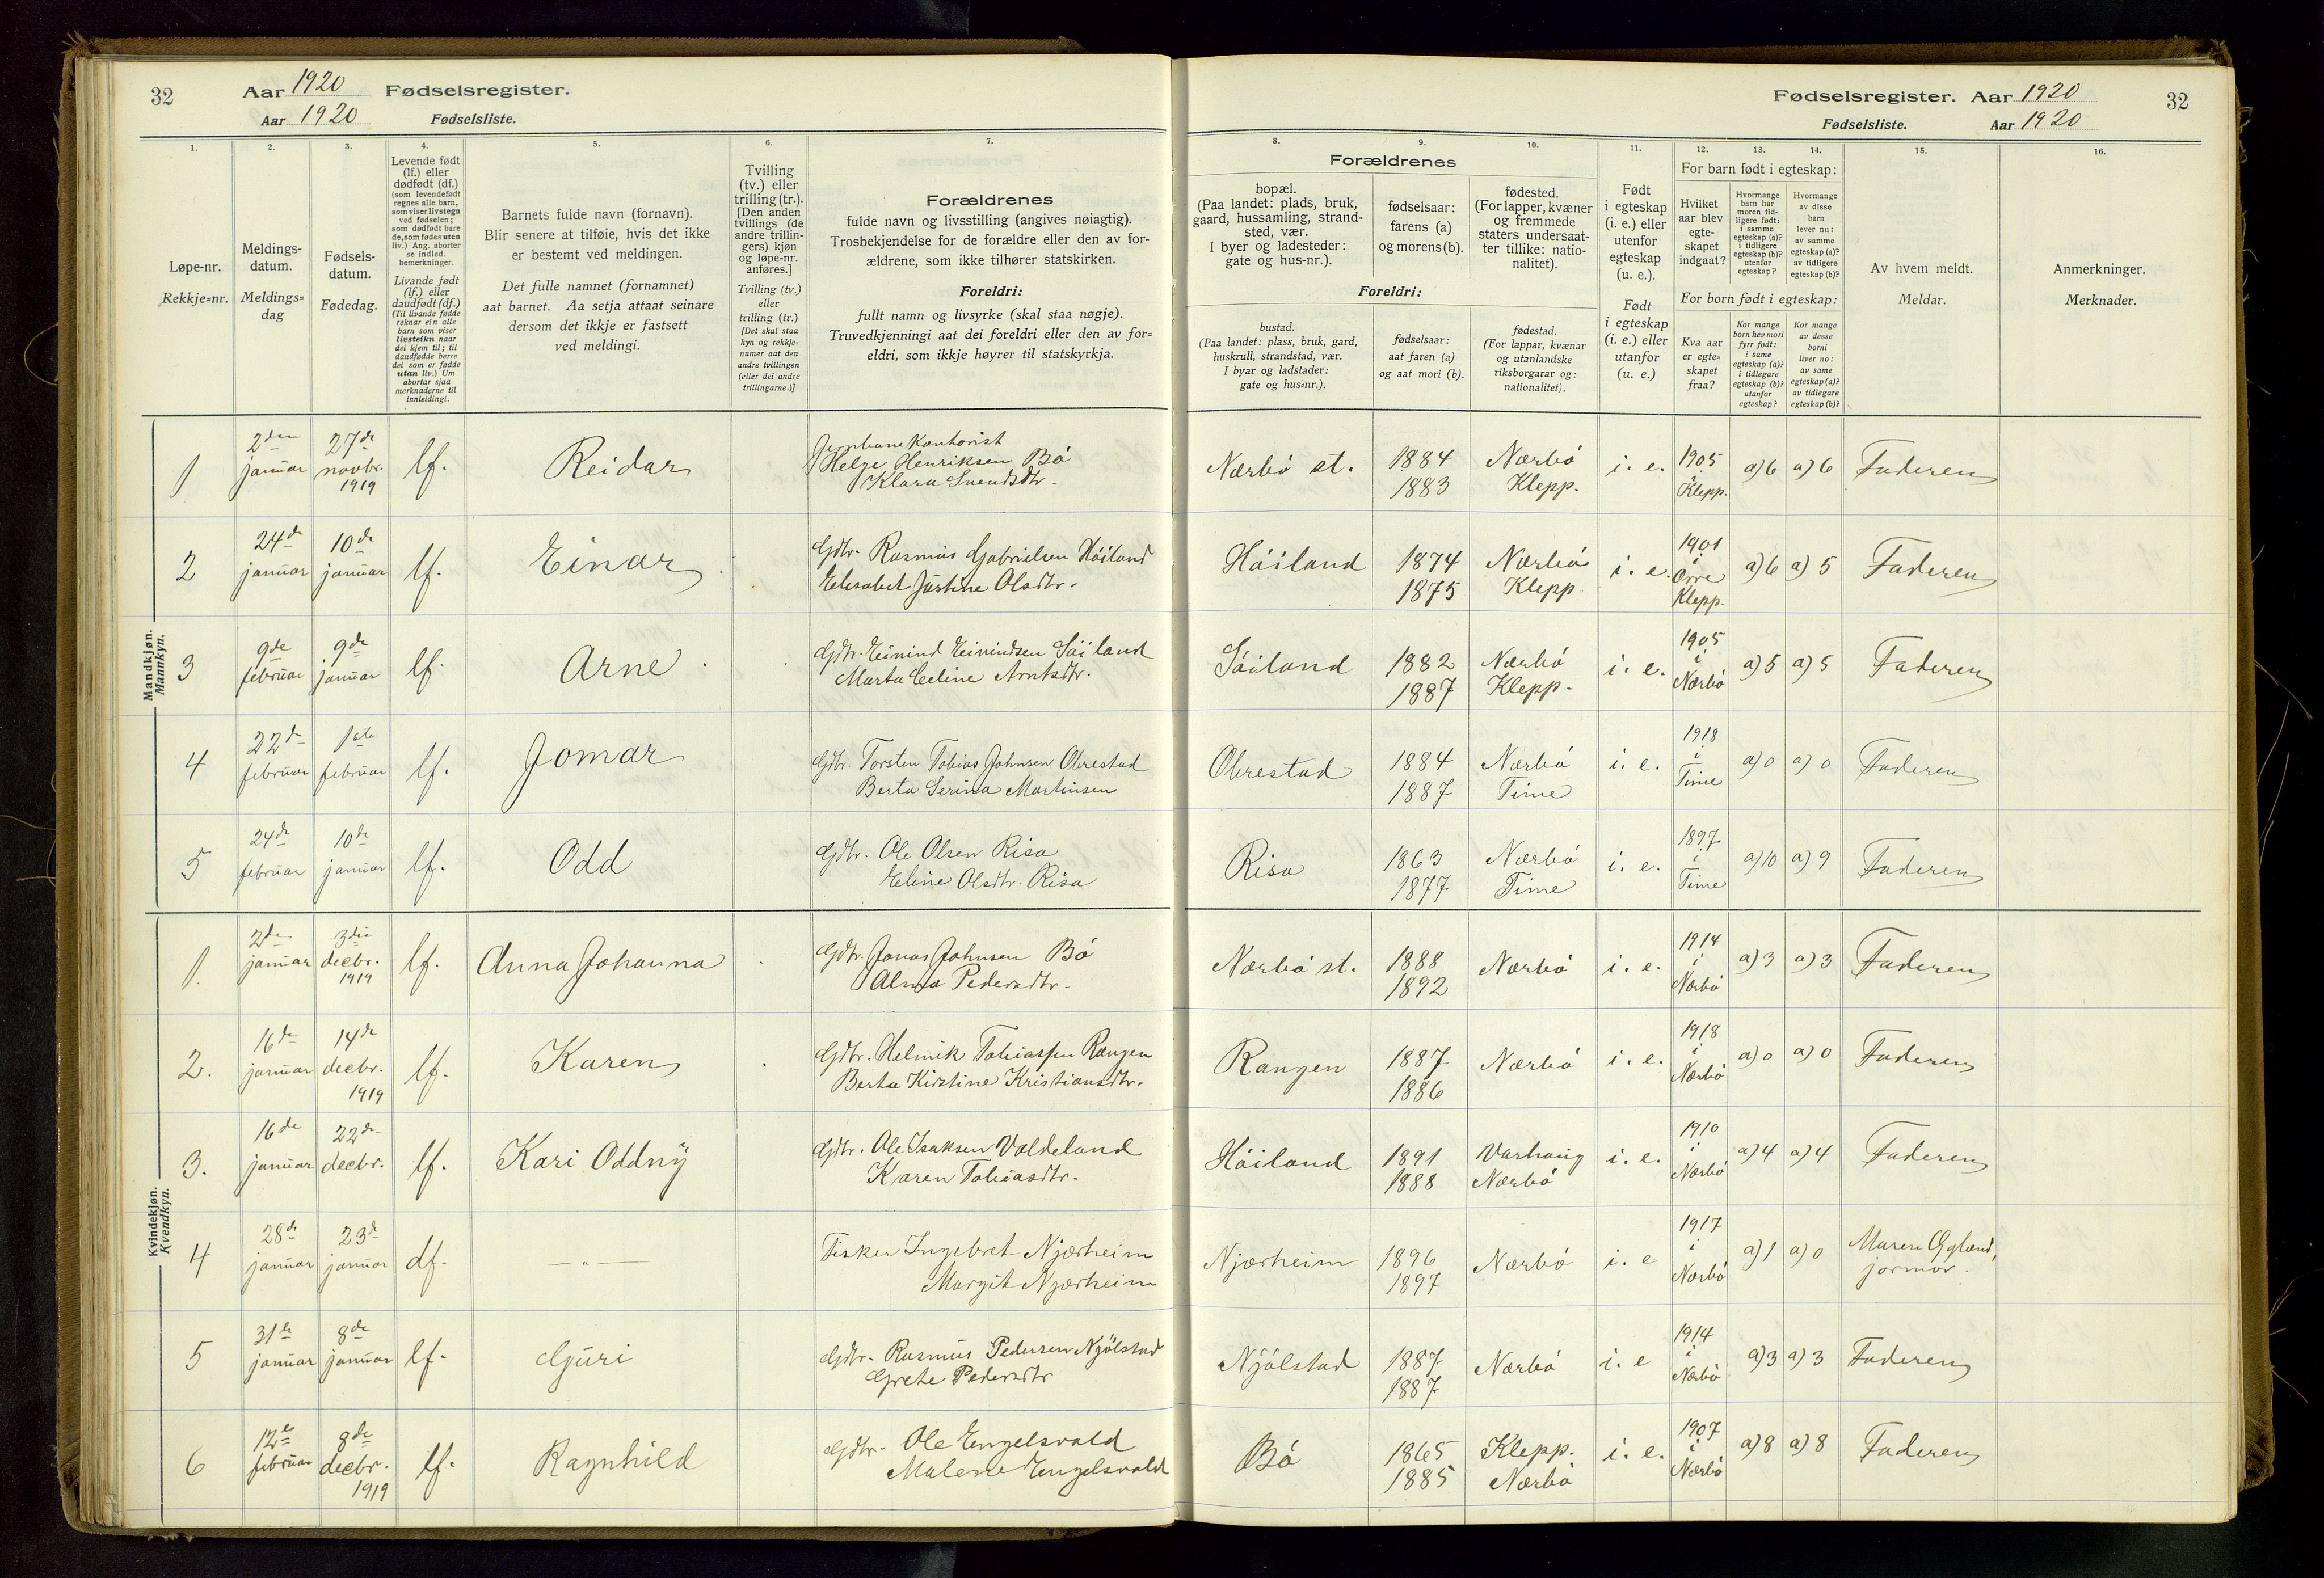 32
Aar 1920 Fødselsregister.
Aar 1920 Fødselsliste.
Fødselsregister. Aar 1920
32
Fødselsliste. Aar 1920
1.
Løpe-nr.
Rekkje=nr.
2.
Meldings-
datum.
Meldings=
dag
3.
Fødsels-
datum.
Fødedag.
4.
Levende født
(lf.) eller
dødfødt (df.)
(som levendefødt
regnes alle barn,
som viser livstegn
ved fødselen;
som dødfødt bare
de, som fødes uten
liv.) Ang. aborter
se indled.
bemerkninger.
Livande født
(lf.) eller
daudfødt (df.)
(Til livande fødde
reknar ein alle
barn som viser
livsteikn naar
dei kjem til; til
daudfødde berre
dei som er fødde
utan liv.) Um
abortar sjaa
merknaderne til
innleidingi.
5.
Barnets fulde navn (fornavn).
Blir senere at tilføie, hvis det ikke
er bestemt ved meldingen.
Det fulle namnet (fornamnet)
aat barnet. Aa setja attaat seinare
dersom det ikkje er fastsett
ved meldingi.
6.
Tvilling
(tv.) eller
trilling (tr.).
[Den anden
tvillings (de
andre trillin-
gers) kjøn
og løpe-nr.
anføres.]
Tvilling (tv.)
eller
trilling (tr.)
[Det skal staa
kyn og rekkje-
numer aat den
andre tvillingen
(eller dei andre
trillingarne.)]
7.
Forældrenes
fulde navn og livsstilling (angives nøiagtig).
Trosbekjendelse for de forældre eller den av for-
ældrene, som ikke tilhører statskirken.
Foreldri:
fullt namn og livsyrke (skal staa nøgje).
Truvedkjenningi aat dei foreldri eller den av for=
eldri, som ikkje høyrer til statskyrkja.
8.
Forældrenes
bopæl.
(Paa landet: plads, bruk,
gaard, hussamling, strand-
sted, vær.
I byer og ladesteder:
gate og hus-nr.).
Foreldri:
bustad.
(Paa landet: plass, bruk, gard,
huskrull, strandstad, vær.
I byar og ladstader:
gate og hus=nr.).
9.
fødselsaar:
farens (a)
og morens (b).
fødselsaar:
aat faren (a)
og aat mori (b).
10.
fødested.
(For lapper, kvæner
og fremmede
staters undersaat-
ter tillike: natio-
nalitet).
fødestad.
(For lappar, kvænar
og utanlandske
riksborgarar og:
nationalitet).
11.
Født
i egteskap
(i. e.) eller
utenfor
egteskap
(u. e.).
Født
i egteskap
(i. e.) eller
utanfor
(u. e.)
12. 13. 14.
For barn født i egteskap:
Hvilket
aar blev
egte-
skapet
indgaat?
Hvormange
barn har
moren tid-
ligere født:
i samme
egteskap (a)?
i tidligere
egteskap (b)?
utenfor
egteskap?
Hvormange
av disse
barn
lever nu:
av samme
egteskap (a)?
av tidligere
egteskap (b)?
For born født i egteskap:
Kva aar
er egte=
skapet
fraa?
Kor mange
born hev mori
fyrr født:
i same
egteskap (a)?
i tidlegare
egteskap (b)?
utanfor
egteskap?
Kor mange
av desse
borni
liver no:
av same
egteskap (a)?
av tidlegare
egteskap (b)?
15.
Av hvem meldt.
Meldar.
16.
Anmerkninger.
Merknader.
Mandkjøn.
Mannkyn.
1 2den januar 27de novbr. 1919 lf. Reidar Jernbanekontorist Helge Henriksen Bø Klara Svendsdtr. Nærbø st. 1884 1883 Nærbø Klepp. i. e. 1905 i Klepp. a) 6 a) 6 Faderen
2 24de januar 10de januar lf. Einar Gdbr. Rasmus Gabrielsen Høiland Elisabet Justine Olsdtr. Høiland 1874 1875 Nærbø Klepp i. e. 1901 i Orre Klepp. a) 6 a) 5 Faderen
3 9de februar 9de januar lf. Arne Gdbr. Eivind Eivindsen Søiland Marta Eeline Arntsdtr. Søiland 1882 1887 Nærbø Klepp. i. e. 1905 i Nærbø a) 5 a) 5 Faderen
4 22de februar 1ste februar lf. Jomar Gdbr. Torsten Tobias Johnsen Obrestad Berta Serina Martinsen Obrestad 1884 1887 Nærbø Time i. e. 1918 i Time a) 0 a) 0 Faderen
5 24de februar 10de januar lf. Odd Gdbr. Ole Olsen Risa Eline Olsdtr. Risa Risa 1863 1877 Nærbø Time i. e. 1897 i Time a) 10 a) 9 Faderen
Kvindekjøn.
Kvendkyn.
1. 2den januar 3die decbr. 1919 lf. Anna Johanna Gdbr. Jonas Johnsen Bø Alma Pedersdtr. Nærbø st. 1888 1892 Nærbø i. e. 1914 i Nærbø a) 3 a) 3 Faderen
2. 16de januar 14de decbr. 1919 lf. Karen Gdbr. Helmik Tobiassen Rangen Berta Kirstine Kristiansdtr. Rangen 1887 1886 Nærbø i. e. 1918 i Nærbø a) 0 a) 0 Faderen
3. 16de januar 22de decbr. lf. Kari Oddny Gdbr. Ole Isaksen Valdeland Karen Tobiasdtr. Høiland 1891 1888 Varhaug Nærbø i. e. 1910 i Nærbø a) 4 a) 4 Faderen
4 28de januar 23de januar df. — „ — Fisker Ingebret Njærheim Margit Njærheim Njærheim 1896 1897 Nærbø i. e 1917 i Nærbø a) 1 a) 0 Maren Ogland, jormor.
5 31te januar 8de januar lf. Guri Gdbr. Rasmus Pedersen Njølstad Grete Pedersdtr Njølstad 1887 1887 Nærbø i. e 1914 i Nærbø a) 3 a) 3 Faderen
6 12te februar 8de decbr. 1919 lf. Ragnhild Gdbr. Ole Engelsvold Malene Engelsvold Bø 1865 1885 Klepp. Nærbø i. e. 1907 i Nærbø a) 8 a) 8 Faderen